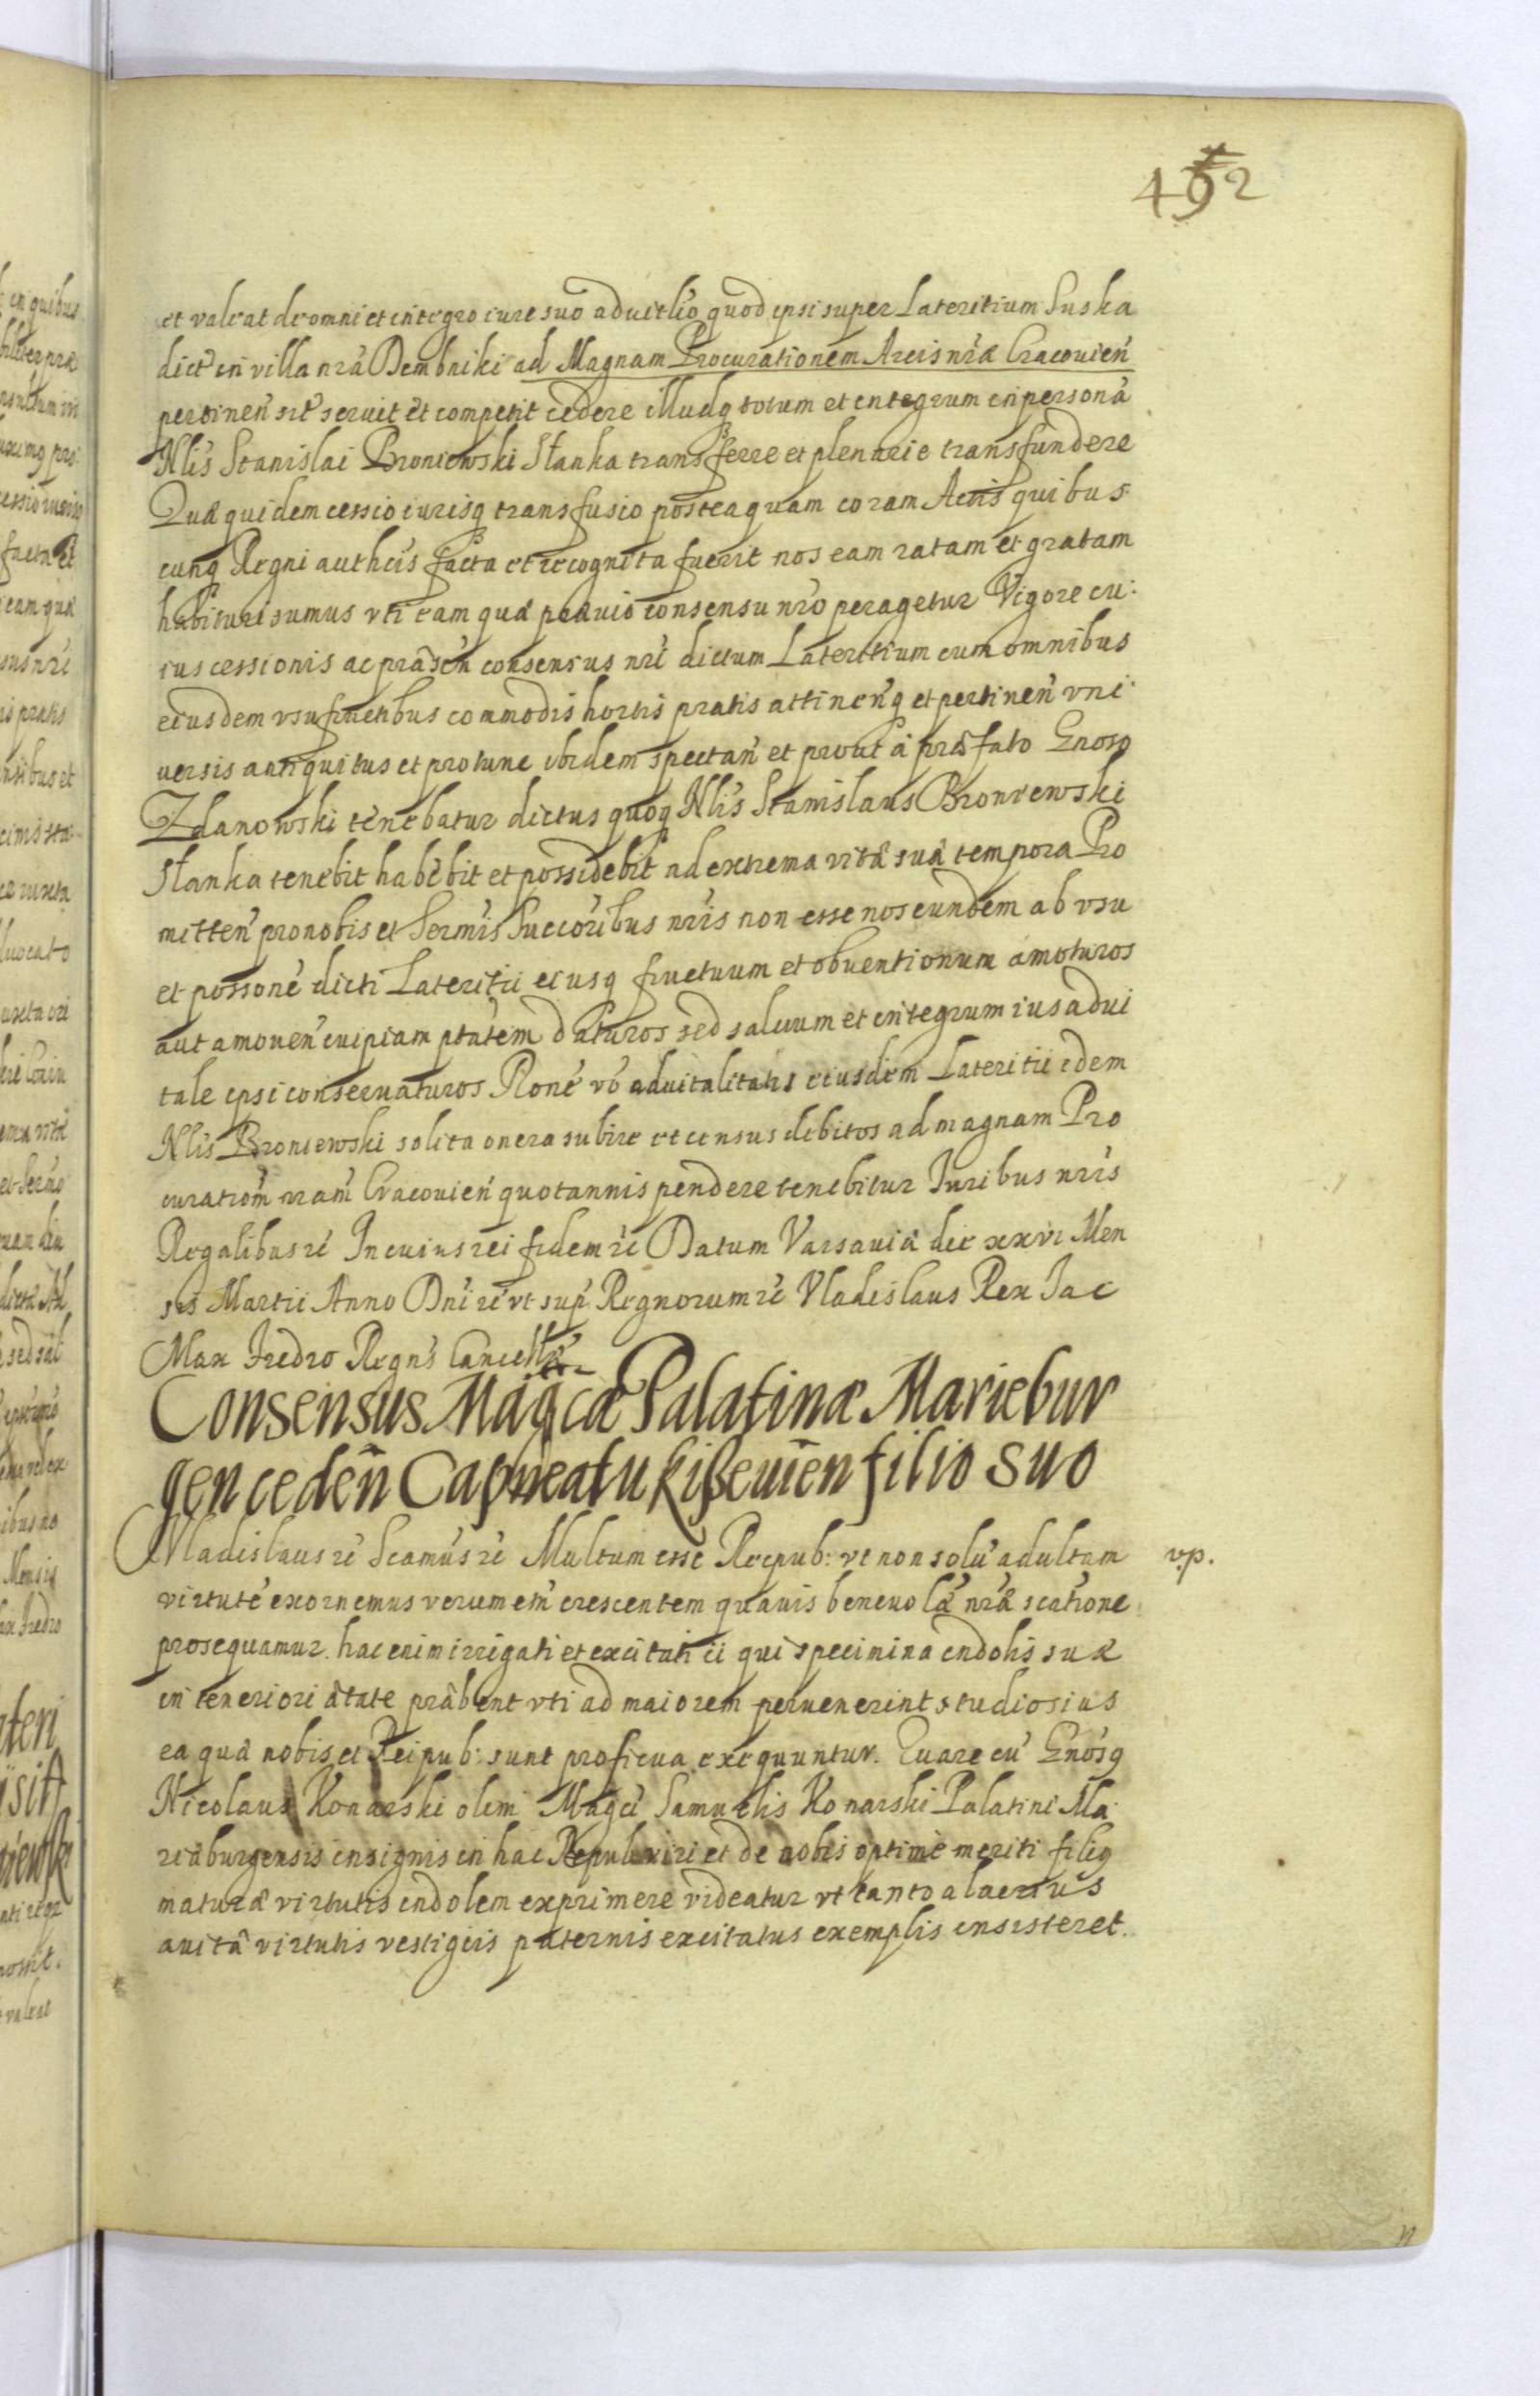 452
et valeat de omni et integro iure suo aduitlio quod ipsi super Lateritium Suska
dict̃ in villa nr̃a Dembniki ad Magnam Procurationem Arcis nr̃æ Cracouien̄
pertinen̄ sit̃ seruit et competit cedere illudq totum et integrum in personã
Nlis Stanislai Broniewski Stanka transferre et plenarie transfundere
Quæ quidem cessio iurisq transfusio posteaquam coram Actis quibus
cunq Regni autheis facta et recognita fuerit nos eam ratam et gratam
habituri sumus vti eam quæ præuio consensu nr̃o peragetur Vigore cu:
ius cessionis ac præsen̄ consensus nr̃i dictum Lateritium cum omnibus
eiusdem vsufructibus commodis hortis pratis attinen̄q et pertinen̄ vni
uersis antiquitus et pro tunc ibidem spectan̄ et prout à præfato Gnoso
Zdanowski tenebatur dictus quoq Nlis Stanislaus Broniewski
Stanka tenebit habebit et possidebit ad extrema vitæ suæ tempora Pro
mitten̄ pro nobis et Sermis Succoribus nr̃is non esse nos eundem ab vsu
et possone dicti Lateritii eiusq fructuum et obuentionum amoturos
aut amouen̄ cuipiam ptãtem daturos sed saluum et integrum ius adui
tale ipsi conseruaturos Rone vo aduitalitatis eiusdem Lateritii idem
Nlis Broniewski solita onera subire et census debitos ad magnam Pro
curationm̃ nr̃am Cracouien̄ quotannis pendere tenebitur Iuribus nr̃is
Regalibus rc̃ In cuius rei fidem rc̃ Datum Varsauiæ die xxvi Men
sis Martii Anno Dni rc̃ vt sup̃ Regnorum rc̃ Vladislaus Rex Jac
Max Fredro Regn̄s Cancellæ
Consensus Magcæ Palatinæ Mariebur
gen ceden̄ Capneatu Kißeuien filio suo
Vladislaus rc̃ Scamus rc̃ Multum esse Reipub: vt non solũ adultam
v.p.
virtute exornemus verum etm̃ crescentem quauis beneuola nr̃æ scatione
prosequamur. hac enim irrigati et excitati ii qui specimina indolis suæ
in teneriori ætate præbent vti ad maiorem peruenerint studiosius
ea quæ nobis et Reipub: sunt proficua exequuntur. Quare cũ Gnosq
Nicolaus Konarski olim Magci Samuelis Konarski Palatini Ma
riæburgensis insignis in hac Repub: viri et de nobis optimè meriti filiq
maturæ virtutis indolem exprimere videatur vt tanto alacrius
auitæ virtutis vestigiis paternis excitatus exemplis insisteret.